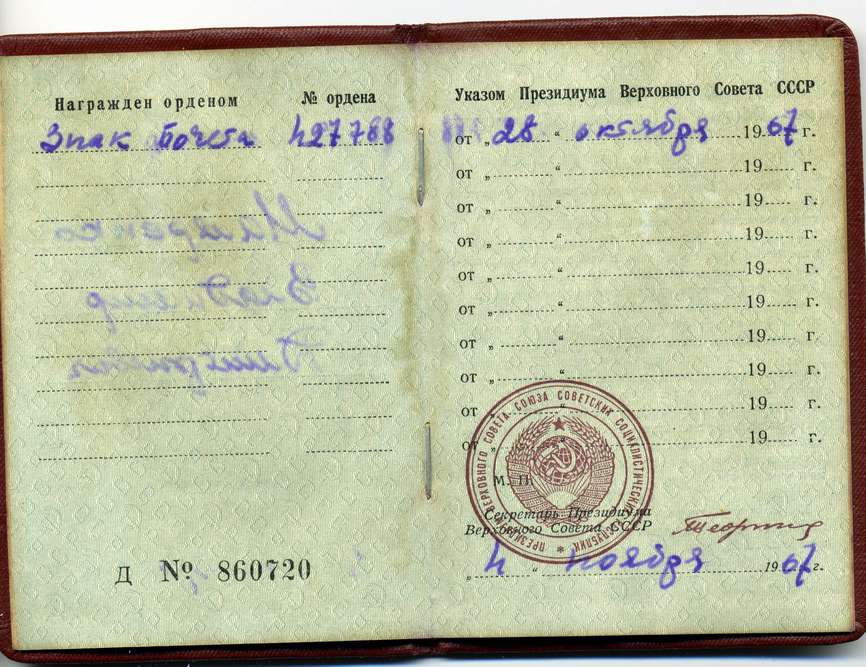 Награжден орденом № ордена
Знак Почета 427768
Д № 860720
Указом Президиума Верховного Совета СССР
от „ 28 “ октября 1967 г.
от „ “ 19 г.
от „ “ 19 г.
от „ “ 19 г.
от „ “ 19 г.
от „ “ 19 г.
от „ “ 19 г.
от „ “ 19 г.
от „ “ 19 г.
от „ “ 19 г.
ПРЕЗИДИУМ ВЕРХОВНОГО СОВЕТА СОЮЗА СОВЕТСКИХ СОЦИАЛИСТИЧЕСКИХ РЕСПУБЛИК
М. П.
Секретарь Президиума
Верховного Совета СССР
„ 4 “ ноября 1967 г.